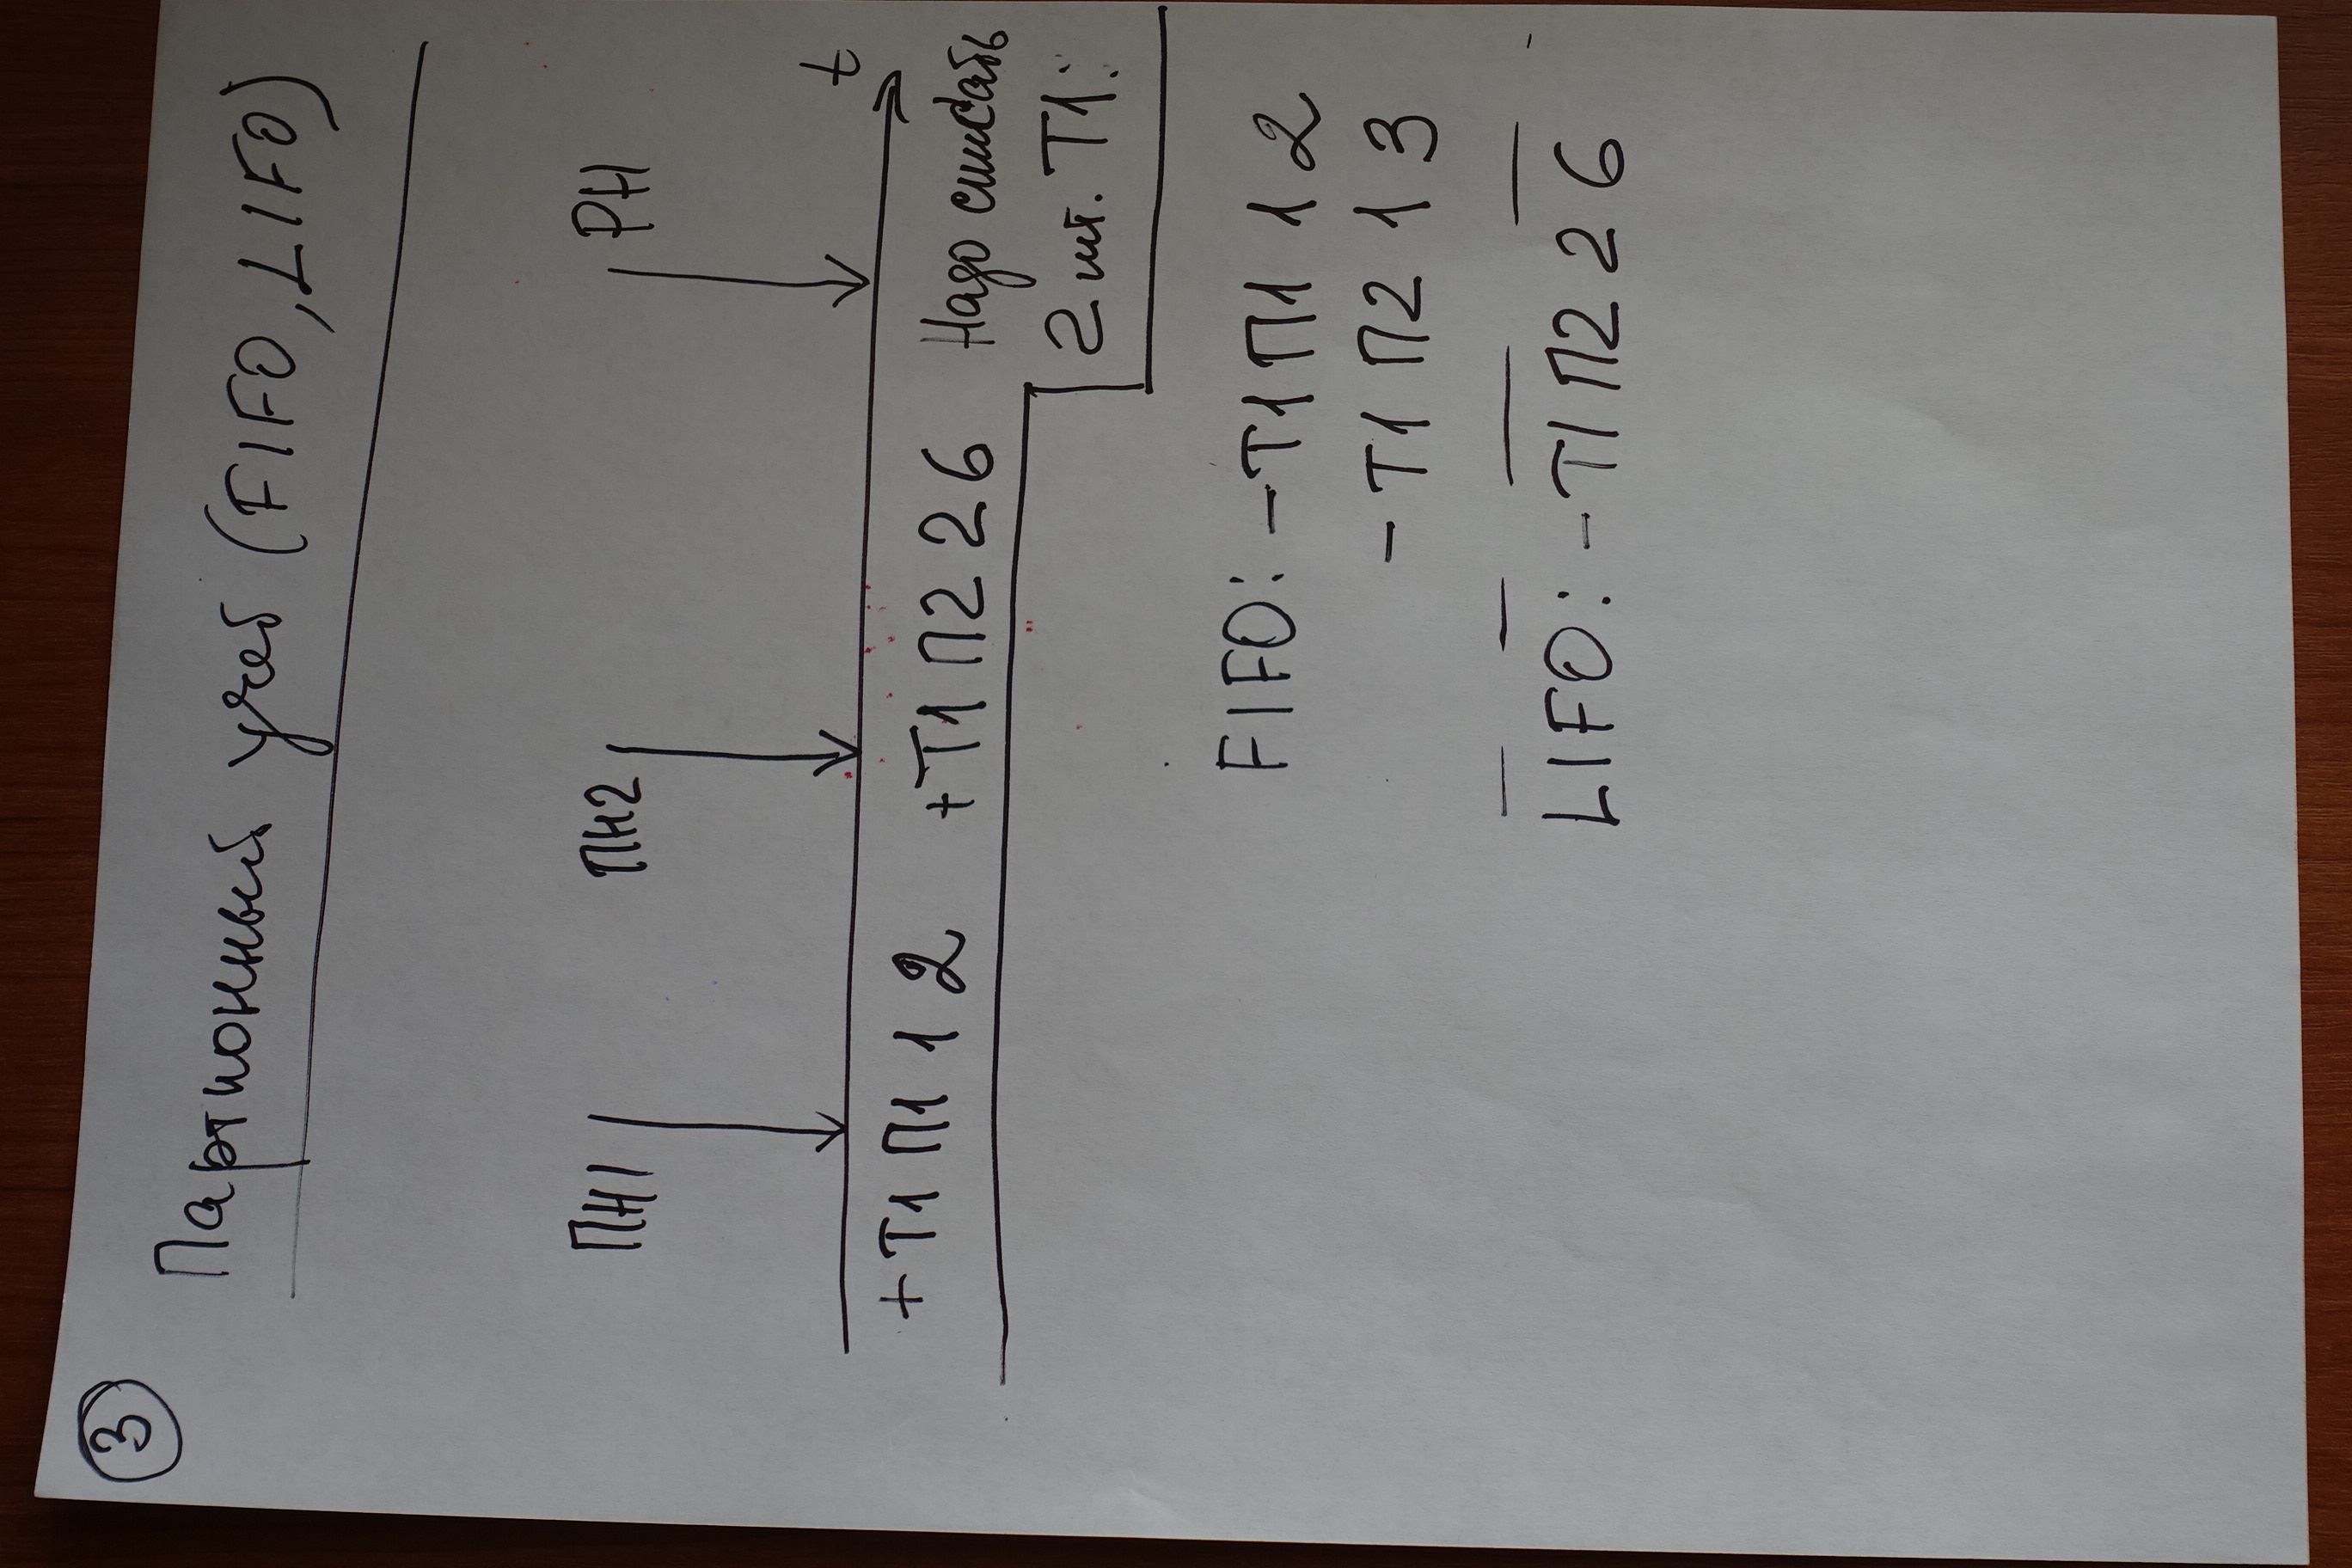 3
Партионный учет (FIFO, LIFO)
ПН1 ПН2 РН
t
+Т1 П1 1 2 +Т1 П2 2 6 Надо списать
2 шт. Т1:
FIFO: -Т1 П1 1 2
-Т1 П2 1 3
LIFO: -Т1 П2 2 6